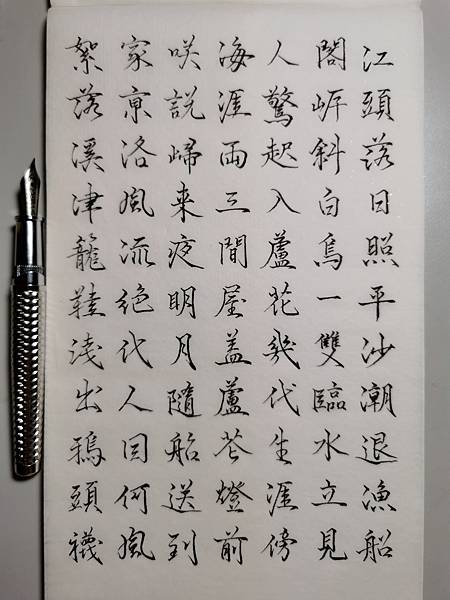 江頭落日照平沙潮退漁船
閣岸斜白鳥一雙臨水立見
人驚起入蘆花幾代生涯傍
海涯兩三間屋蓋蘆花燈前
咲説歸来夜明月隨船送到
家亰洛風流絶代人因何風
絮落溪津籠鞋淺出鴉頭襪